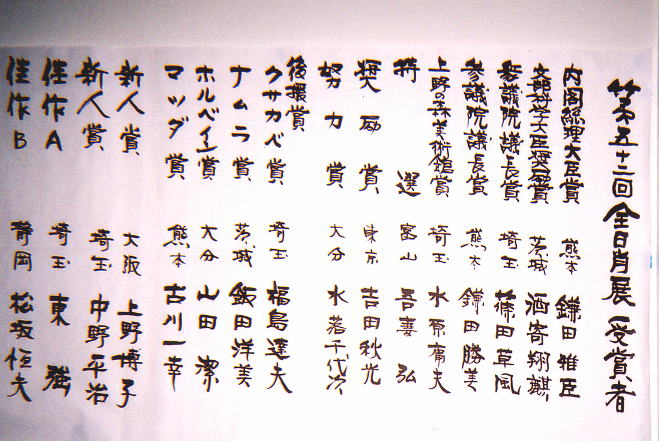 第五十二回全日肖展受賞者
内閣総理大臣賞 熊本 鎌田雅臣
文部科学大臣奨励賞 茨城 酒寄翔麒
衆議院議長賞 埼玉 篠田草風
参議院議長賞 熊本 鎌田勝美
上野の森美術館賞 埼玉 水原庸夫
特選 富山 吾妻弘
奨励賞 東京 吉田秋光
努力賞 大分 水若千代次
後援賞
クサカベ賞 埼玉 福島達夫
ナムラ賞 茨城 飯田洋美
ホルベイン賞 大分 山田潔
マツダ賞 熊本 古川一幸
新人賞 大阪 上野博子
新人賞 埼玉 中野平治
佳作A 埼玉 東強
佳作B 静岡 松坂恒夫